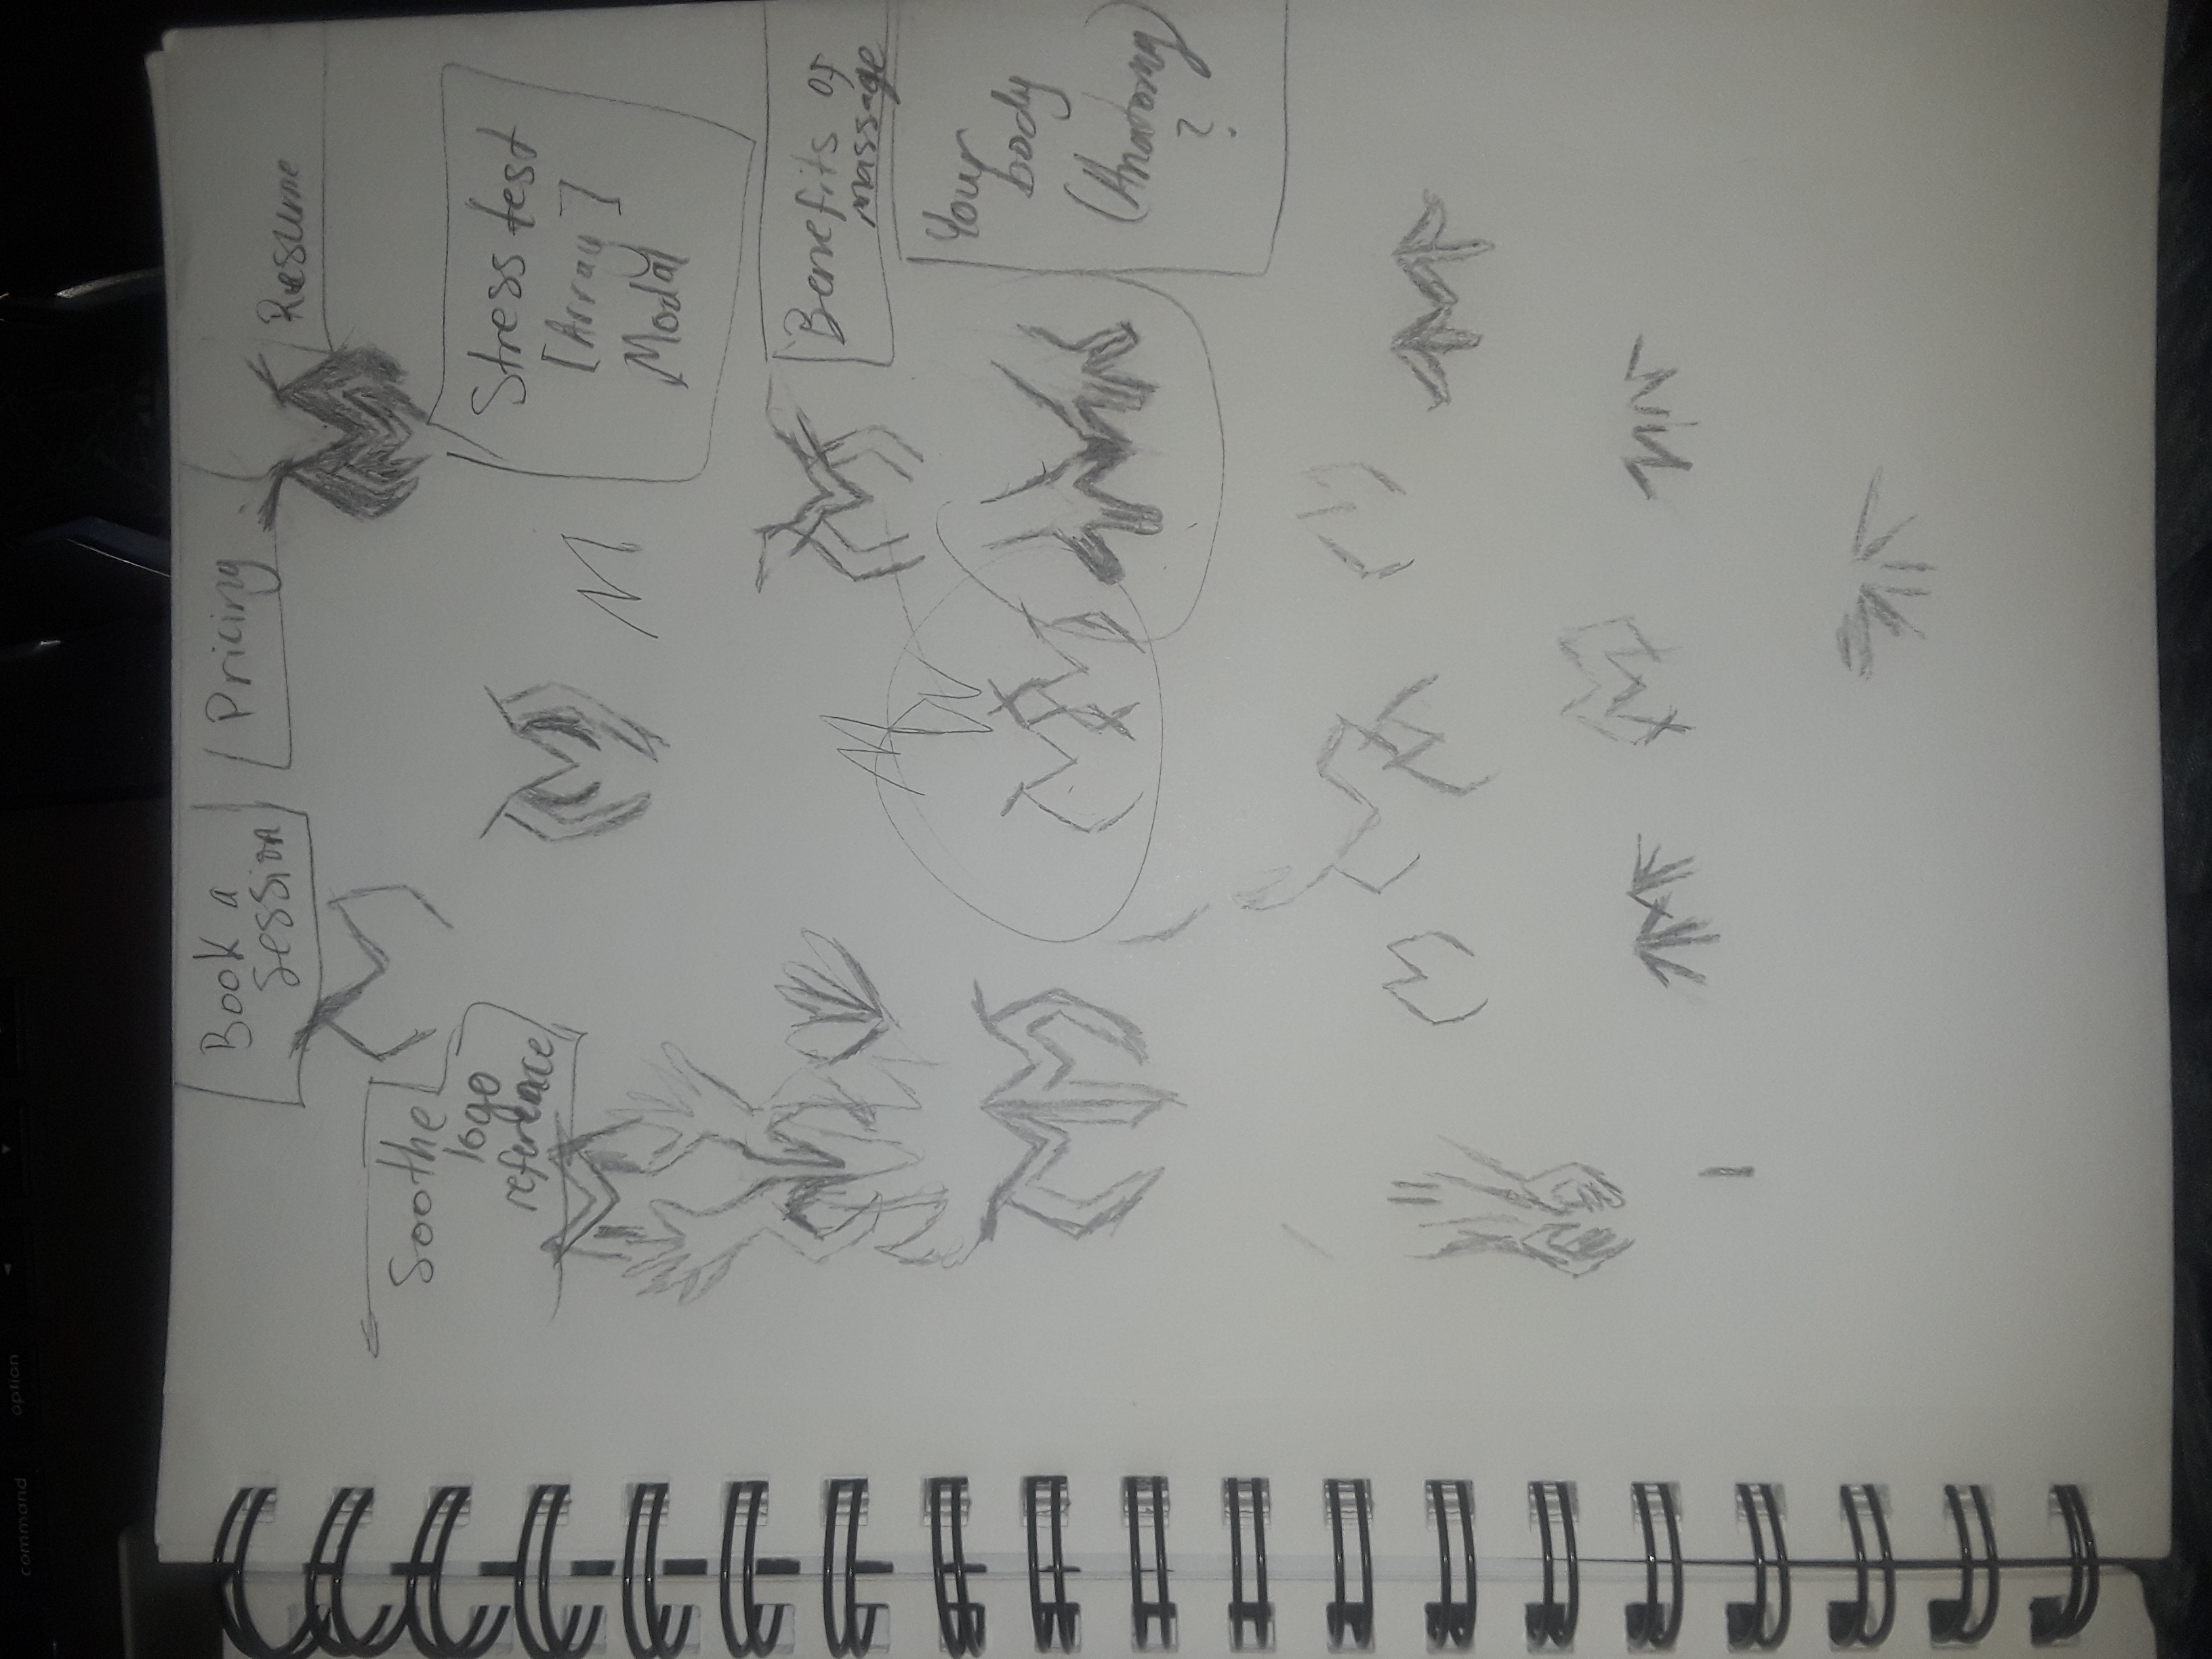 command
option
Book a
Session
Pricing
Resume
Soothe
logo
reference
Stress test
[Array]
Modal
M
Benefits of
massage
M
Your
body
(Anatomy)
?